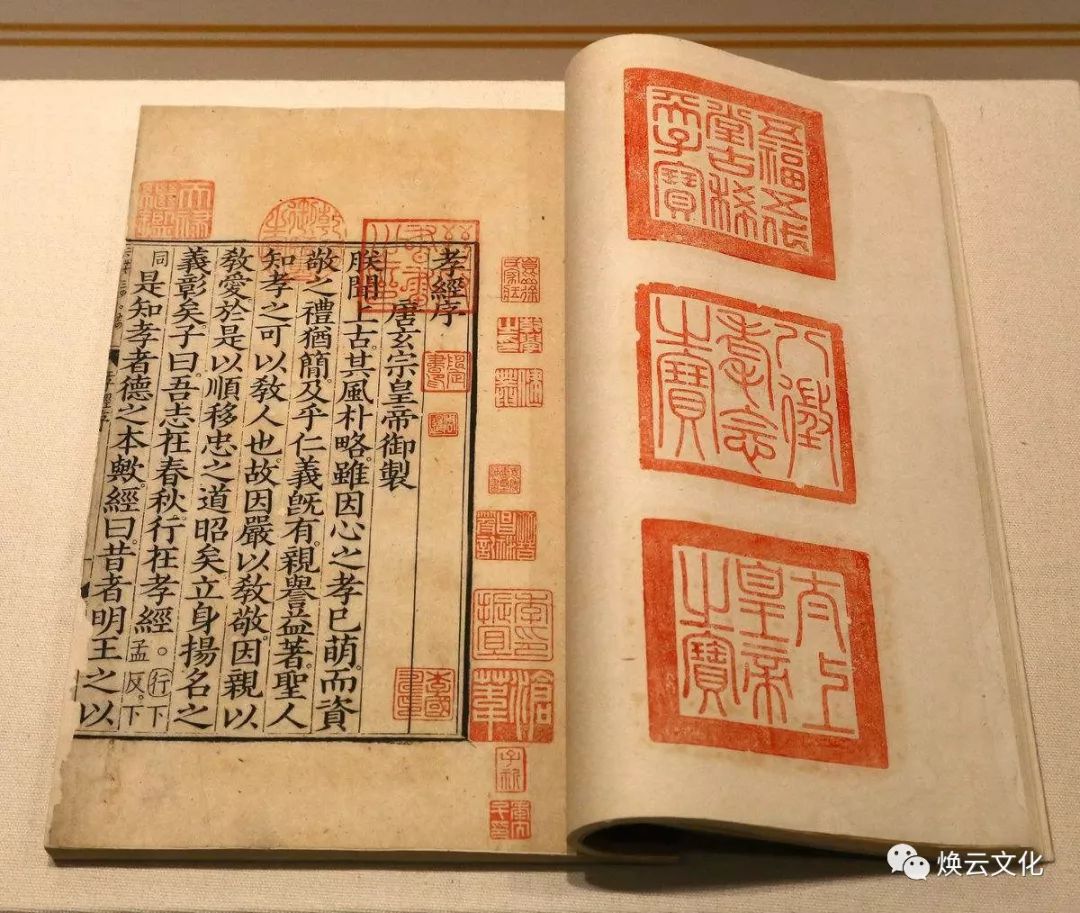 五福五代
堂古稀
天子寶
八徵
耄念
之寶
太上
皇帝
之寶
季振宜印
滄葦
乾隆御覽之寶
天祿繼鑑
孝經序
唐玄宗皇帝御製
朕聞上古其風朴略雖因心之孝已萌而資
敬之禮猶簡及乎仁義旣有親譽益著聖人
知孝之可以敎人也故因嚴以敎敬因親以
敎愛於是以順移忠之道昭矣立身揚名之
義彰矣子曰吾志在春秋行在孝經。行下孟反下
同是知孝者德之本歟經曰昔者明王之以
焕云文化